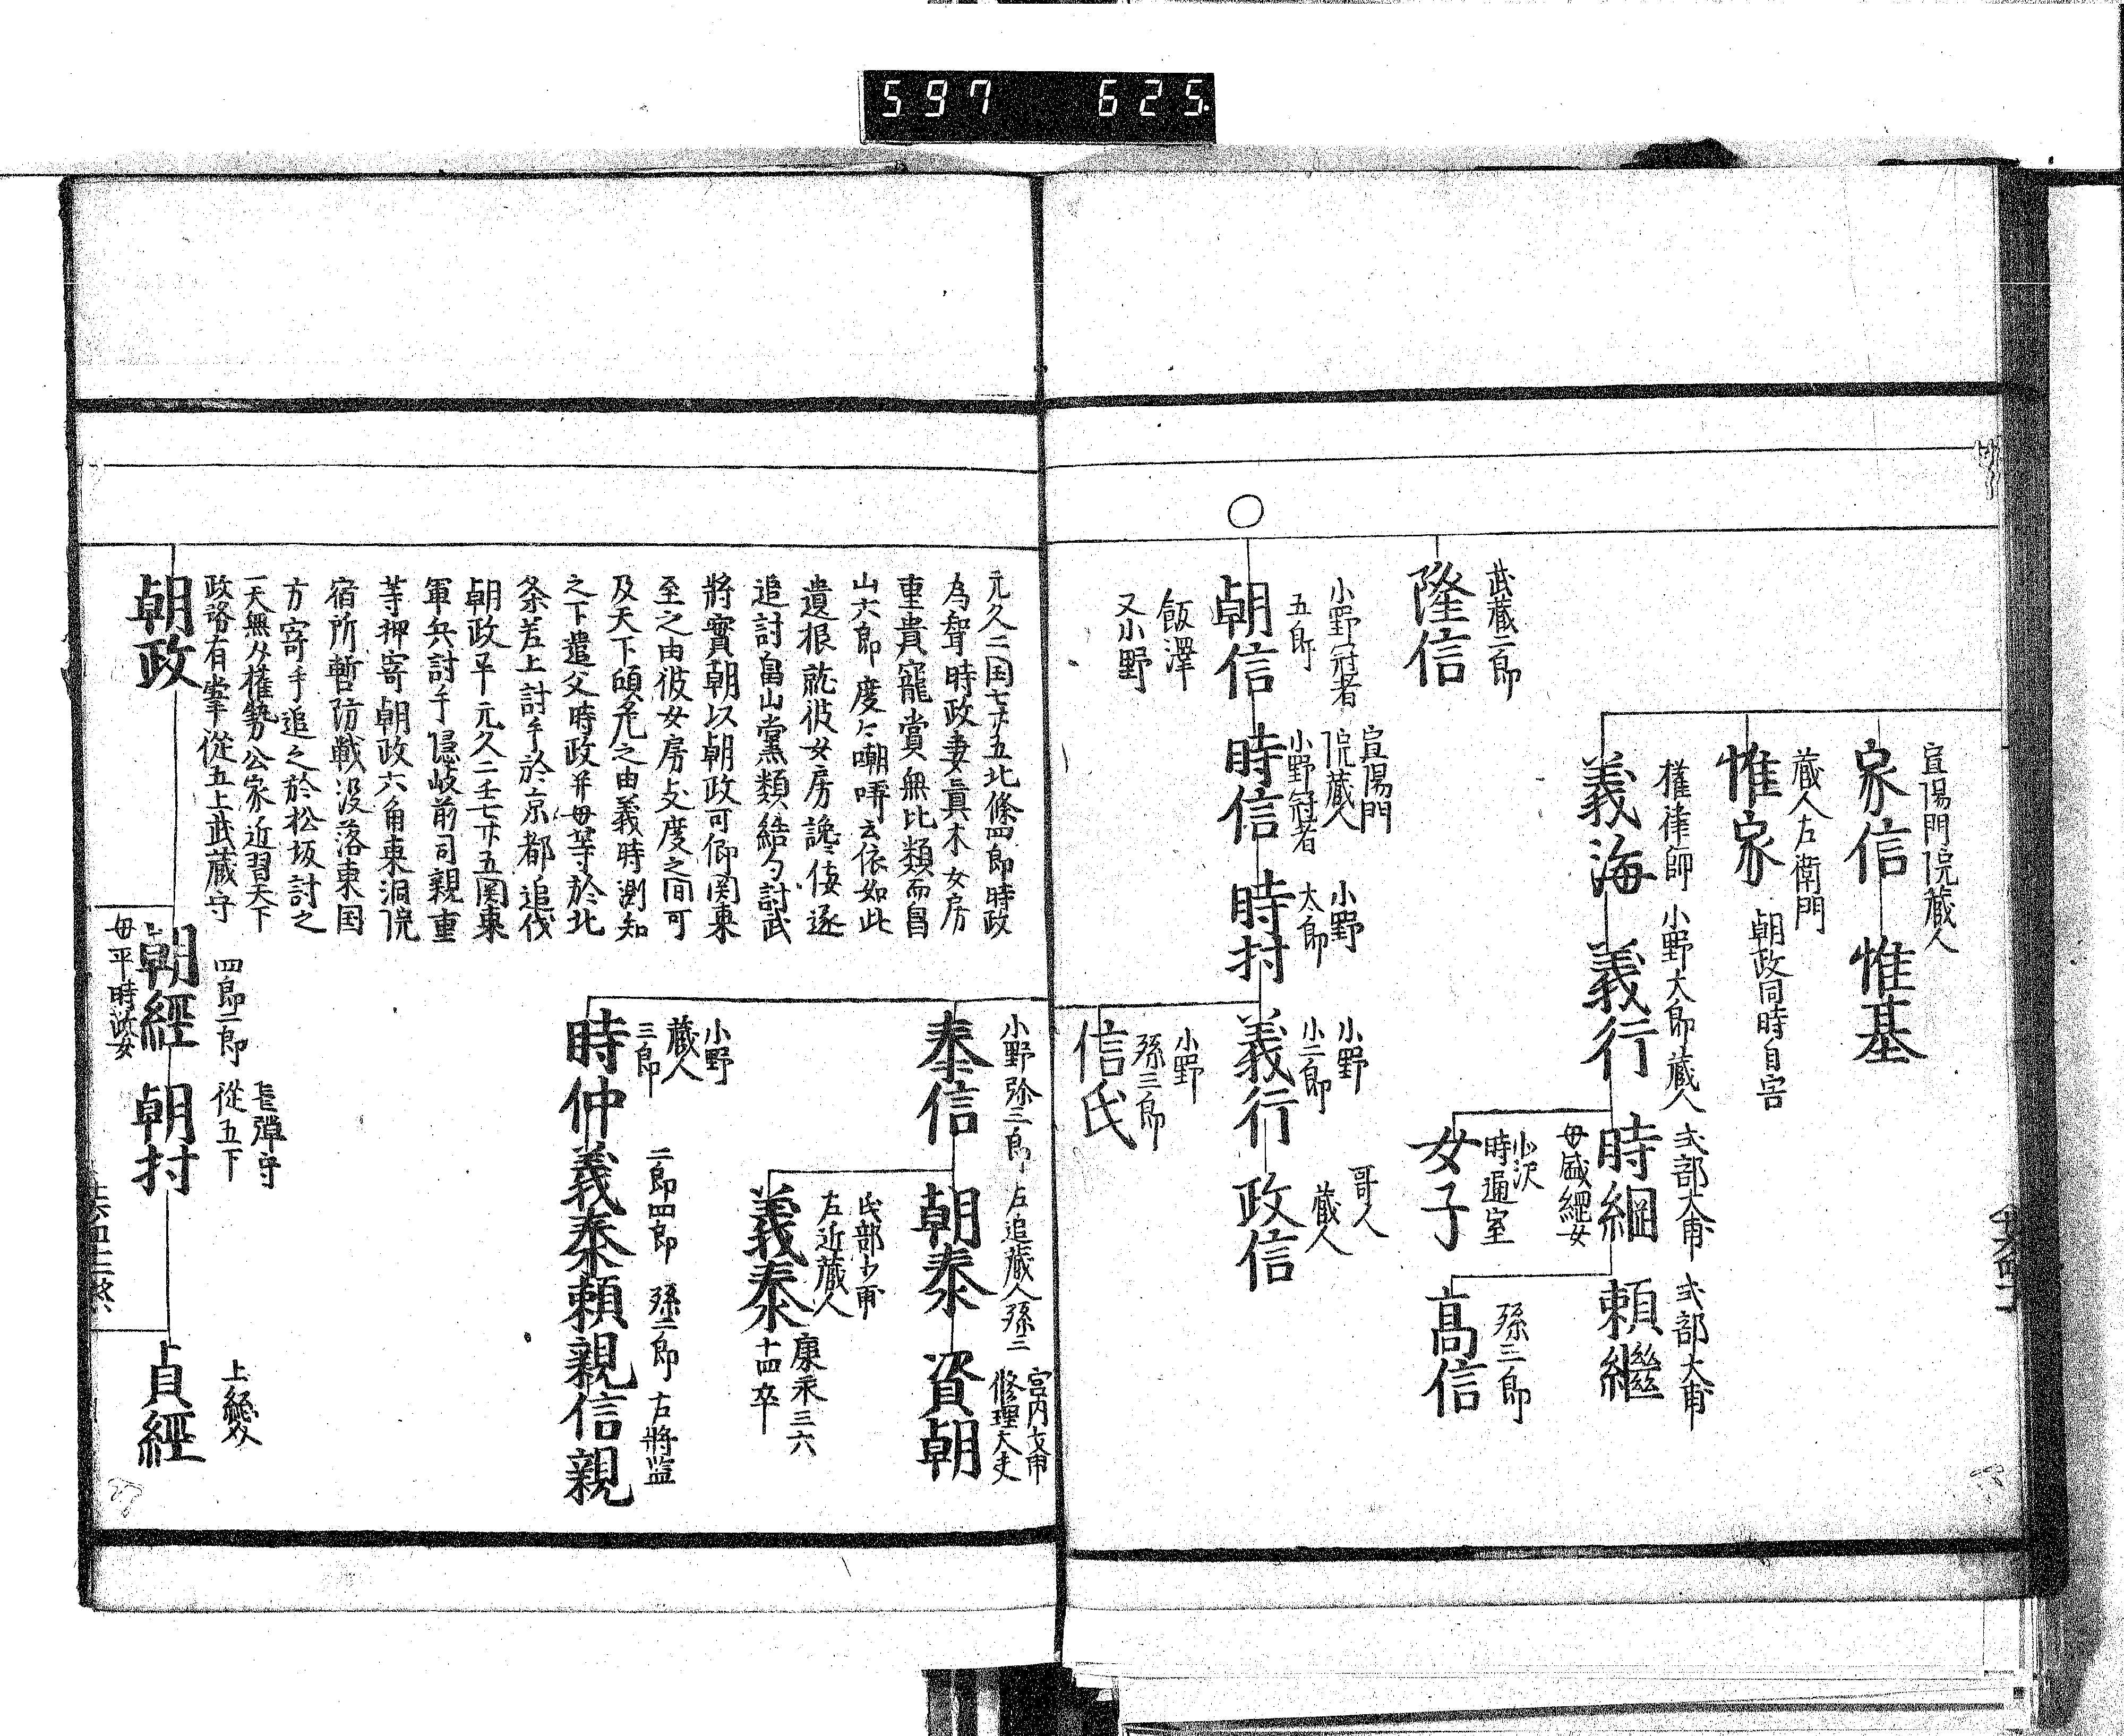 597 625
宣陽門院蔵人
家信 惟基
蔵人左衛門 朝政同時自害
惟家
権律師 小野太郎蔵人 式部大甫 式部大甫
義海 義行 時綱 頼継
母盛縄女
時通室
女子 高信
孫三郎
武蔵二郎
隆信
小野冠者 宣陽門院蔵人 小野 小野 哥人
五郎 小野冠者 太郎 小二郎 蔵人
朝信 時信 時村 義行 政信
飯澤
又小野
小野
孫三郎
信氏
小野弥三郎 左近蔵人孫三 宮内大甫
修理大夫
泰信 朝泰 資朝
民部少甫
左近蔵人 康永三六
義泰 十四卒
小野
蔵人
三郎 二郎四郎 孫二郎 右将監
時仲 義泰 頼親 信親
元久二閏七廿五北條四郎時政
為聟時政妻真木女房
重貴寵賞無比類而畠
山六郎度々嘲哢云依如此
遺恨就彼女房讒佞逐
追討畠山黨類結勾討武
将實朝以朝政可仰関東
至之由彼女房支度之間可
及天下頃危之由義時測知
之下遣父時政并母等於北
条差上討手於京都追伐
朝政平元久二壬七廿五関東
軍兵討手隠岐前司親重
等押寄朝政六角東洞院
宿所暫防戦没落東国
方寄手追之於松坂討之
一天無双権勢公家近習天下
政路有掌從五上武蔵守
四郎二郎 從五下
朝政 朝經 朝村 貞經
母平時政女